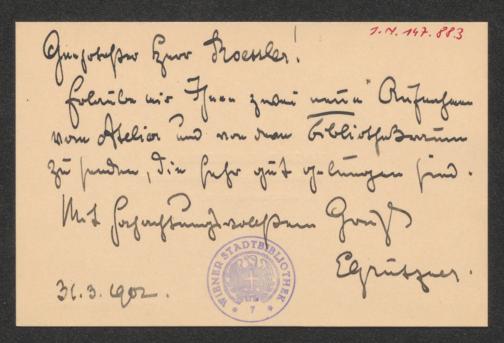 I.N. 147.883
Geehrtester Herr Roessler!
Erlaube mir Ihnen zwei neue Aufnahmen
vom Atelier und von dem Bibliotheksraum
zu senden, die sehr gut gelungen sind.
Mit hochachtungsvollstem Gruß
EGrützner.
31.3.1902.
WIENER STADTBIBLIOTHEK
7